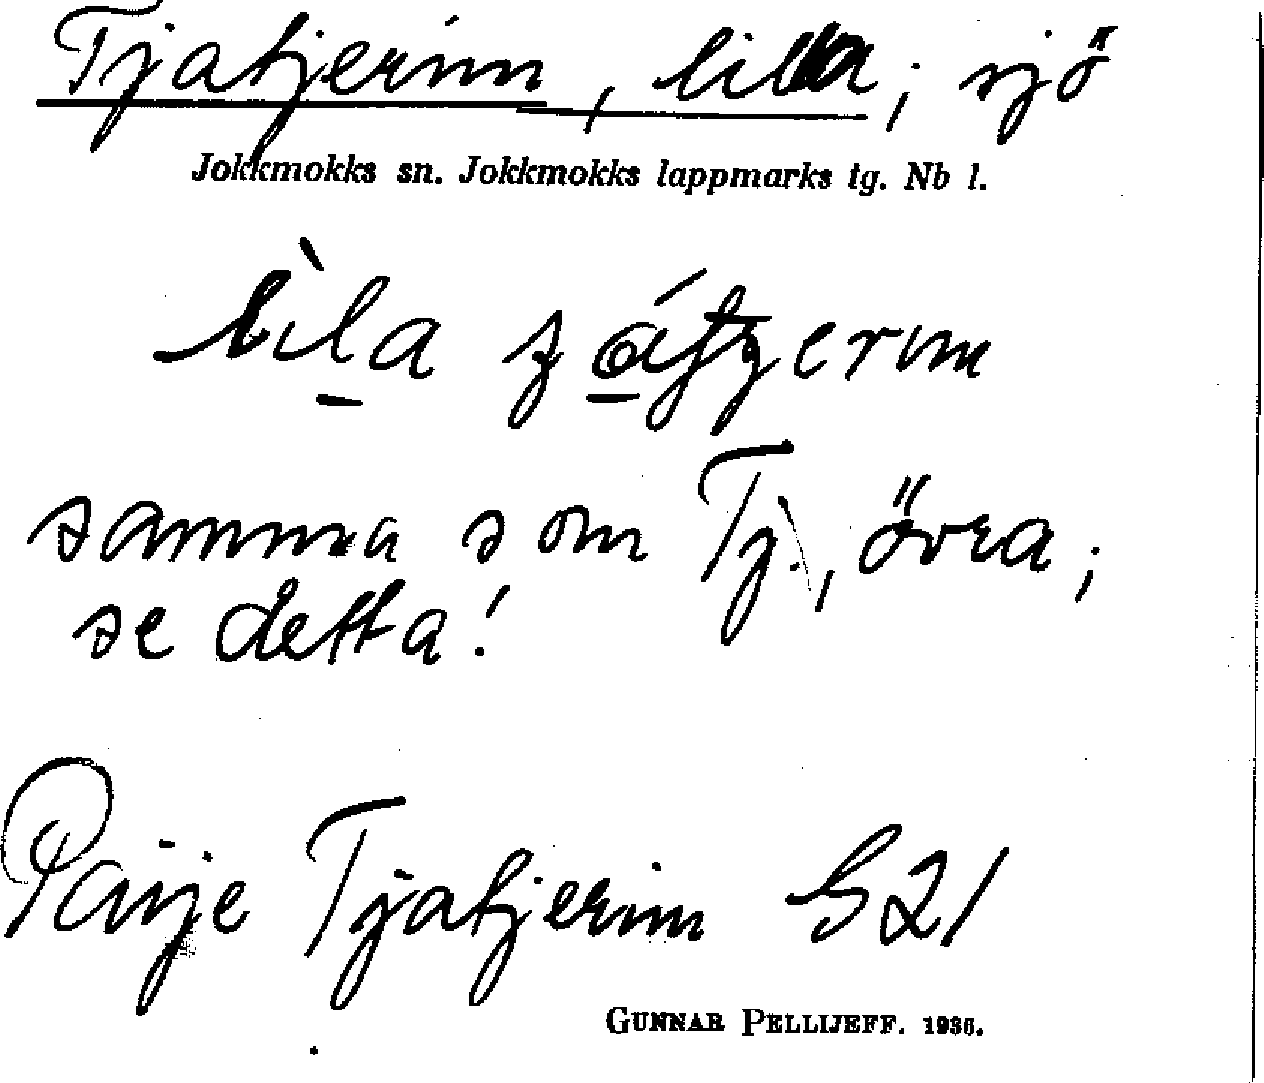 Tjatjerim, lilla; sjö
Jokkmokks sn. Jokkmokks lappmarks tg. Nb l.
samma som Tj., övra;
se detta!
Paije Tjatjerim S21
GUNNAR PELLIJEFF. 1936.